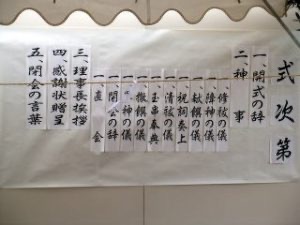 式次第
一、開式の辞
二、神事
一、修祓の儀
一、降神の儀
一、献饌の儀
一、祝詞奏上
一、清祓の儀
一、玉串奉奠
一、撤饌の儀
一、昇神の儀
一、閉会の辞
一、直会
三、理事長挨拶
四、感謝状贈呈
五、閉会の言葉